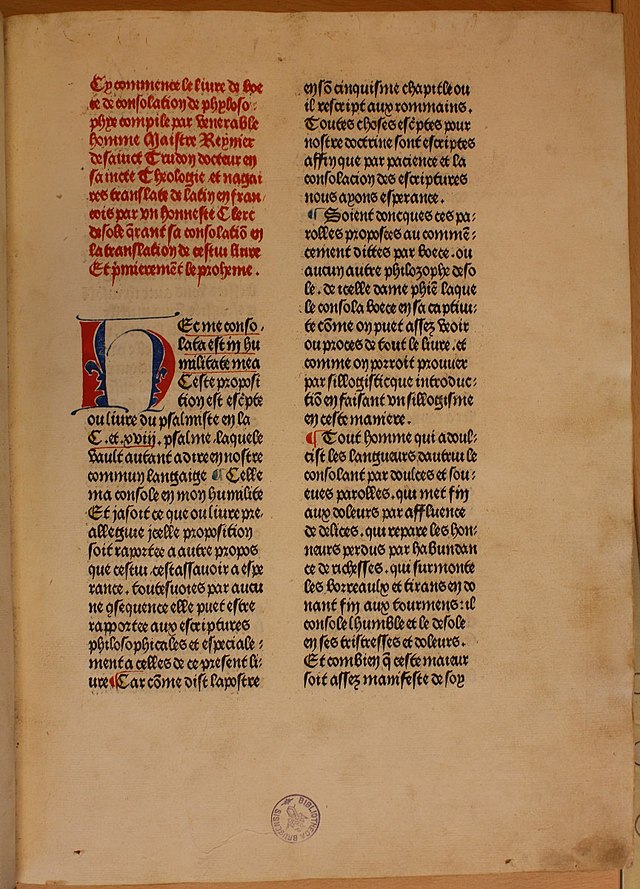 Cy commence le liure de boe
ce de consolation de phyloso-
phye compile par venerable
homme Maistre Reynier
de sainct Trudon docteur en
saincte Theologie .et nagai
res translate de latin en fran
cois par vn honneste Clerc
desole q̄rant sa consolatiō en
la translation de cestui liure
Et p̄mierement̄ le proheme .
HEc me conso.
lata est in hu
militate mea
Ceste proposi
tion est esc̄pte
ou liure du psalmiste en la
C. et. xviij. psalme. laquele
vault autant a dire en nostre
commun langaige ¶ Celle
ma console en mon humilite
Et ja soit ce que ou liure pre-
alleguie jcelle proposition
soit raportee a autre propos
que cestui. cest assauoir a espe
rance. toutesuoies par aucu
ne 9sequence elle puet estre
rapportee aux escriptures
philosophicales et especiale-
ment a celles de ce present li-
ure ¶ Car cōme dist lapostre
en sō cinquisme chapitle ou
il rescript aux rommains.
Toutes choses esc̄ptes pour
nostre doctrine sont escriptes
affin que par pacience et la
consolacion des escriptures
nous ayons esperance.
¶ Soient doncques ces pa-
rolles proposees au commē-
cement dittes par boece. ou
aucun autre philozophe deso
le. de icelle dame phiē laque
le consola boece en sa captiui-
te cōme on puet assez veoir
ou proces de tout le liure. et
comme on porroit prouuer
par sillogisticque introduc-
tiō en faisant vn sillogisme
en ceste maniere.
¶ Tout homme qui adoul-
cist les langueurs dautrui le
consolant par doulces et sou-
eues parolles. qui met fin
aux doleurs par affluence
de delices. qui repare les hon-
neurs perdus par habundan
ce de richesses. qui surmonte
les borreaulx et tirans en do
nant fin aux tourmens: il
console lhumble et le desole
en ses tristresses et doleurs.
Et combien q̄ ceste maieur
soit assez manifeste de soy
BIBLIOTHECA BRUGENSIS